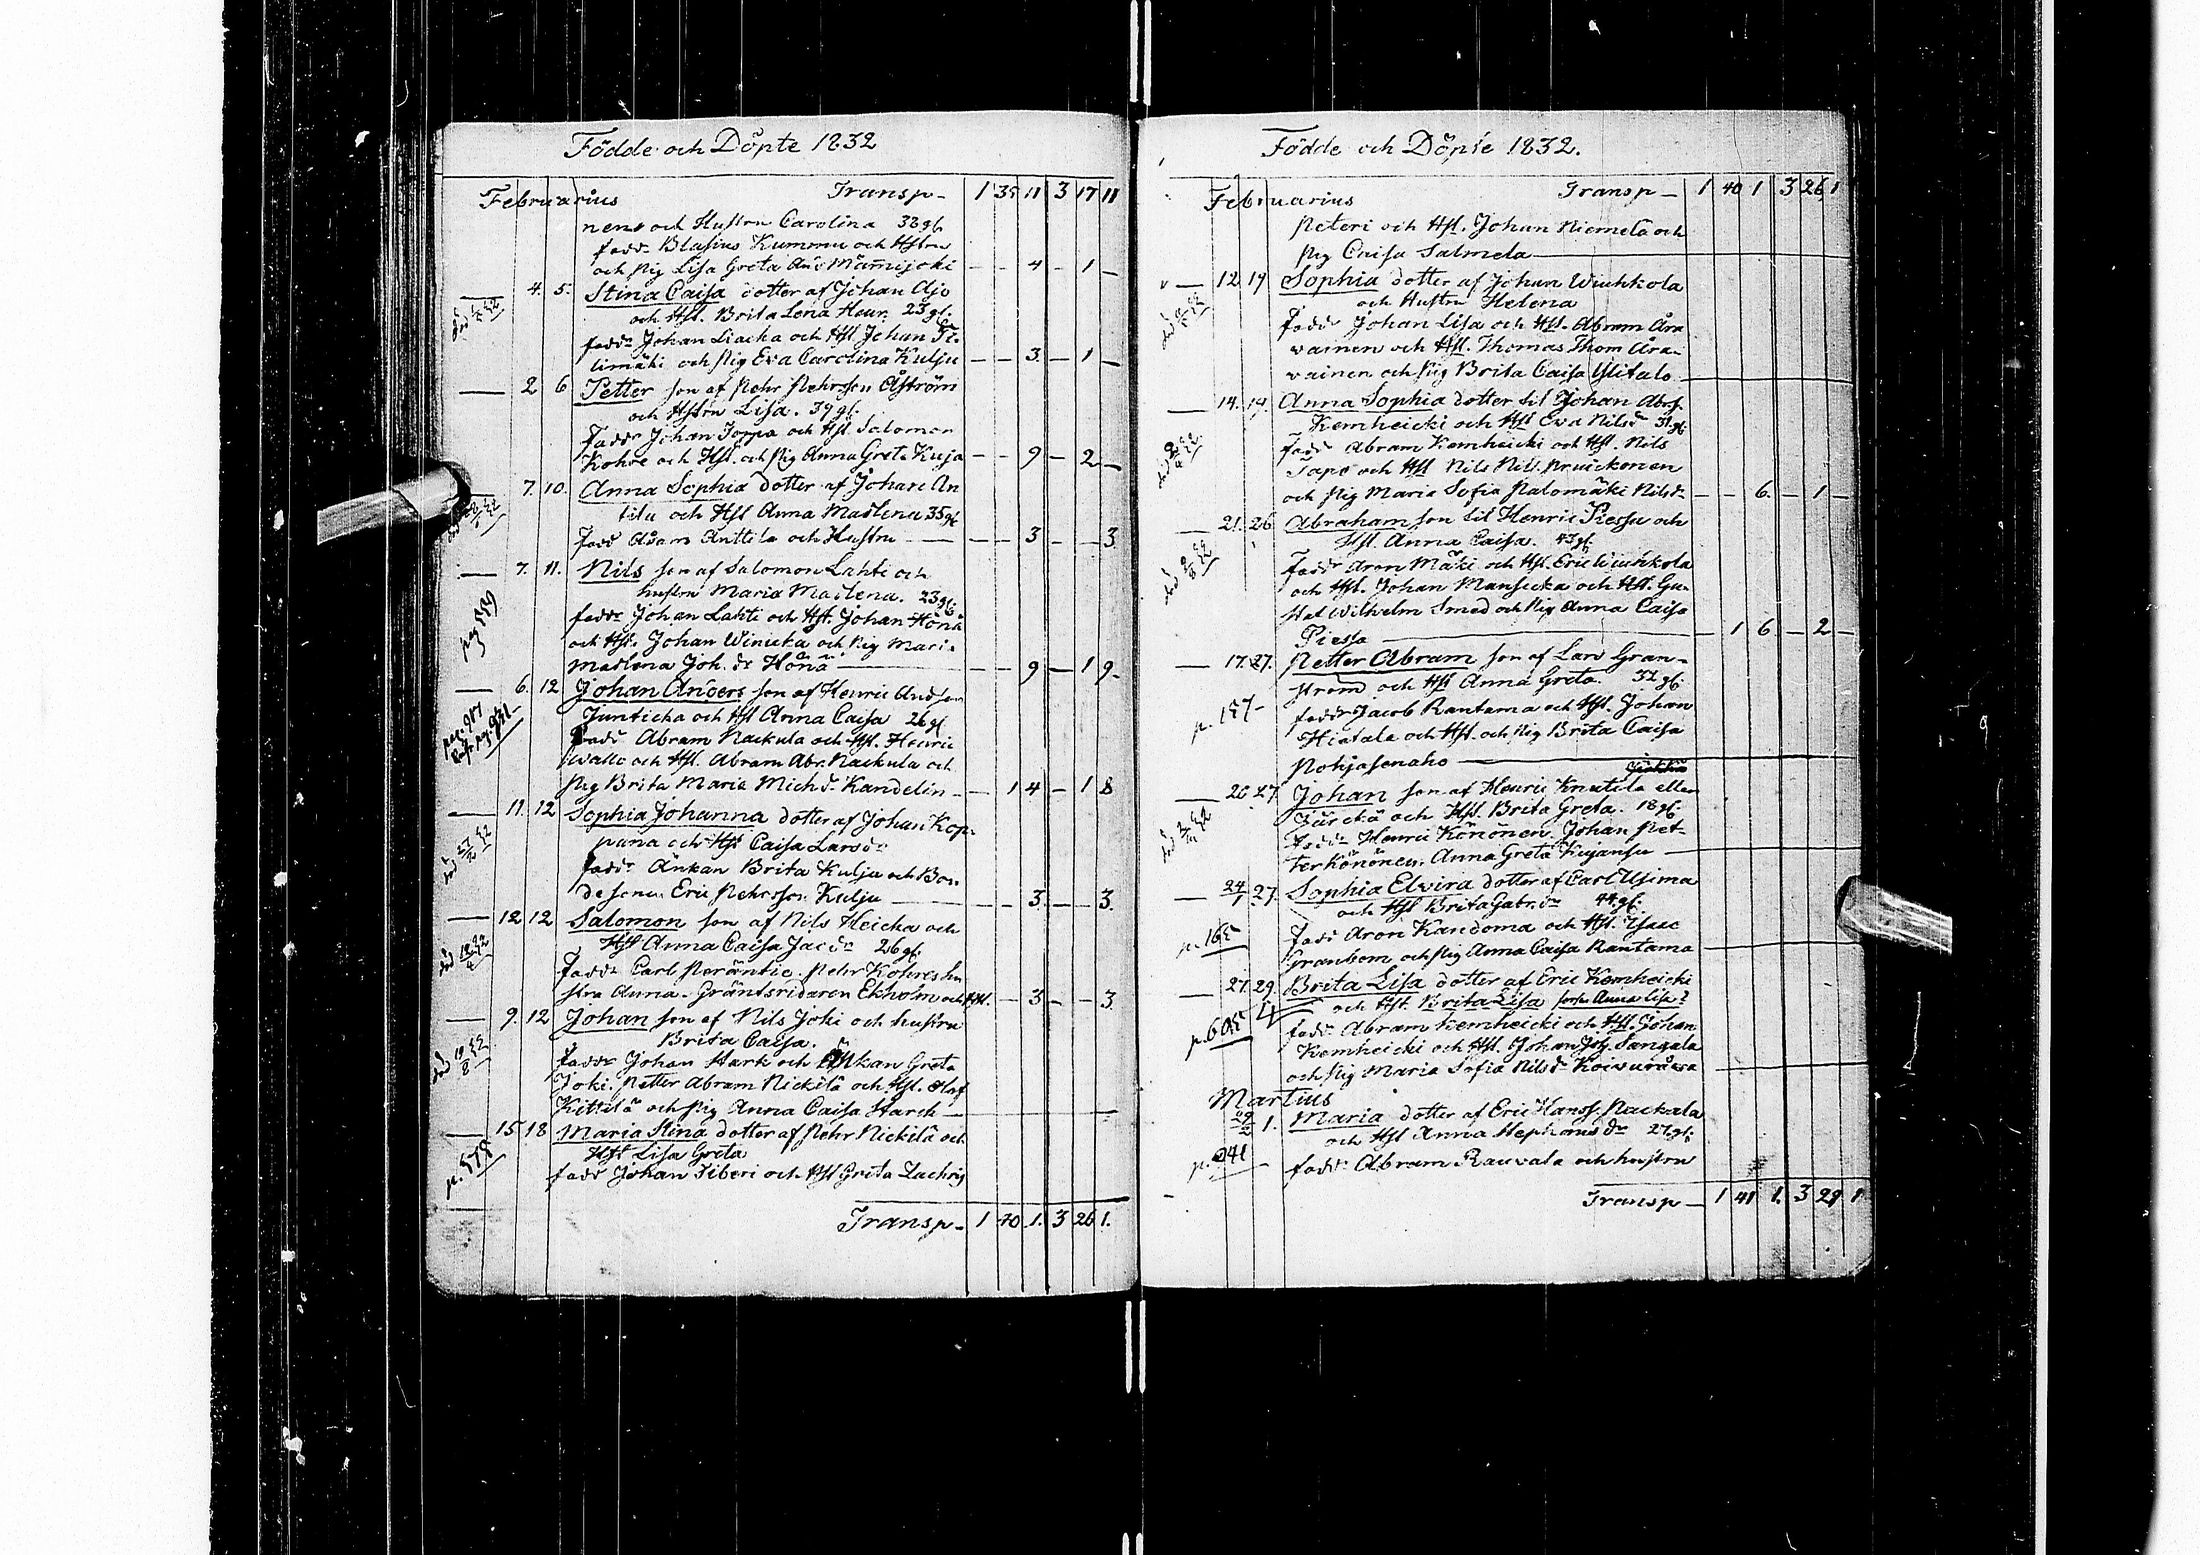 Födde och Döpte 1832
Februarius Transp- 1 35 11 3 17 11
nens och Hustru Carolina 38 gl.
fadd. Blasius Kummu och Hstru
och Pig Lisa Greta And. Mämijoki — — 4 — 1 —
4. 5. Stina Caisa dotter af Johan Ajo
och Hst. Brita Lena Henr. 23 gl.
fadd. Johan Liacka och Hst. Johan Ti-
limäki och Pig Eva Carolina Kulju — — 3 — 1 —
— 2 6 Petter son af Pehr Pehrsson Åström
och Hstru Lisa. 39 gl.
Fadd. Johan Joppa och Hst. Salomon
Kohre och Hst. och Pig Anna Greta Kuja — — 9 — 2 —
7. 10. Anna Sophia dotter af Johan An
tila och Hst Anna Madlena 35 gl
Fadd Adam Anttila och Hustru — — 3 — — 3
— 7. 11. Nils son af Salomon Lahti och
hustru Maria Madlena. 23 gl.
fadd. Johan Lahti och Hst. Johan Hönä
och Hst. Johan Winicka och Pig Mari-
pag 559
Madlena Joh. dr Hönä — — 9 — 1 9 -
— 6. 12 Johan Anders son af Henric Andsson
Junticka och Hst Anna Caisa 26 gl
fadd Abram Nackula och Hst. Henric
Wallo och Hst. Abram Abr. Nackula och
Pig Brita Maria Mich dr Kandelin — 1 4 — 1 8
— 11. 12 Sophia Johanna dotter af Johan Kop-
pana och Hst Caisa Lars dr
död 27/2 32
fadd. Änkan Brita Kulju och Bon-
desonen Eric Pehrsson Kulju — — 3 — — 3.
— 12 12 Salomon son af Nils Heicka och
Hst Anna Caisa Jac dr 26 gl.
död 18/4 32
Fadd. Carl Peräntie. Pehr Kohres hu
stru Anna - Gräntsridaren Ekholm och Hst. — 3 — — 3
— 9. 12 Johan son af Nils Joki och hustru
Brita Caisa.
död 19/8 32
Fadd Johan Hark och Änkan Greta
Joki. Petter Abram Nickilä och Hst. Olof
Kittilä och Pig Anna Caisa Harch —
— 15 18 Maria Stina dotter af Pehr Nickilä och
Hst Lisa Greta
p. 578
fadd Johan Siberi och Hst Greta Zachris
Transp- 1 40 1. 3 26 1.
Födde och Döpte 1832.
Februarius Transp — 1 40 1 3 26 1
Peteri och Hst. Johan Niemelä och
Pig Caisa Salmela —
— 12 19 Sophia dotter af Johan Wiuhkola
och Hustru Helena
Fadd. Johan Lisa och Hst. Abram Ara
vainen och Hst. Thomas Thom Ara-
vainen och Pig Brita Caisa Ylitalo —
— 14. 19. Anna Sophia dotter til Johan Abr. s.
Kemheicki och Hst Eva Nils dr 31 gl.
Fadd Abram Kemheicki och Hst. Nils
Tapo och Hst Nils Nils. Pruickonen
och Pig Maria Sofia Palomäki Nils dr — — 6. — 1 —
— 21. 26 Abraham son til Henric Piessa och
Hst. Anna Caisa. 43 gl.
Fadd Aron Mäki och Hst. Eric Wiuhkola
och Hst. Johan Mansicka och Hst. Gu-
staf Wilhelm Smed och Pig Anna Caisa
Piessa — 1 6 — 2 —
— 17. 27. Petter Abram son af Lars Gran-
ström och Hst Anna Greta. 32 gl.
p. 157-
fadd Jacob Rantama och Hst. Johan
Hietala och Hst. och Pig Brita Caisa
Pohjasenaho —
— 20 27 Johan son af Henric Knutila eller
Jürckä och Hst. Brita Greta. 18 gl.
Fadd. Henric Könönen. Johan Pet-
ter Könönen. Anna Greta Kujansu —
— 24/1 27. Sophia Elvira dotter af Carl Usima
och Hst Brita Gabr. dr 44 gl.
p. 165
Fadd Aron Kandoma och Hst. Isaac
Granbom och Pig Anna Caisa Rantama
— 27. 29. Brita Lisa dotter af Eric Kemheicki
och Hst. Brita Lisa förr Anna Lisa?
p. 605
Fadd. Abram Kemheicki och Hst. Johan
Kemheicki och Hst. Johan Joh. Sangala
och Pig Maria Sofia Nils dr Koivuråwa
Martius
29/2 1. Maria dotter af Eric Hanss. Nackala
och Hst Anna Stephans dr 27 gl.
p. 241
fadd. Abram Rauvala och hustru
Transp — 1 41 1. 3 29 1